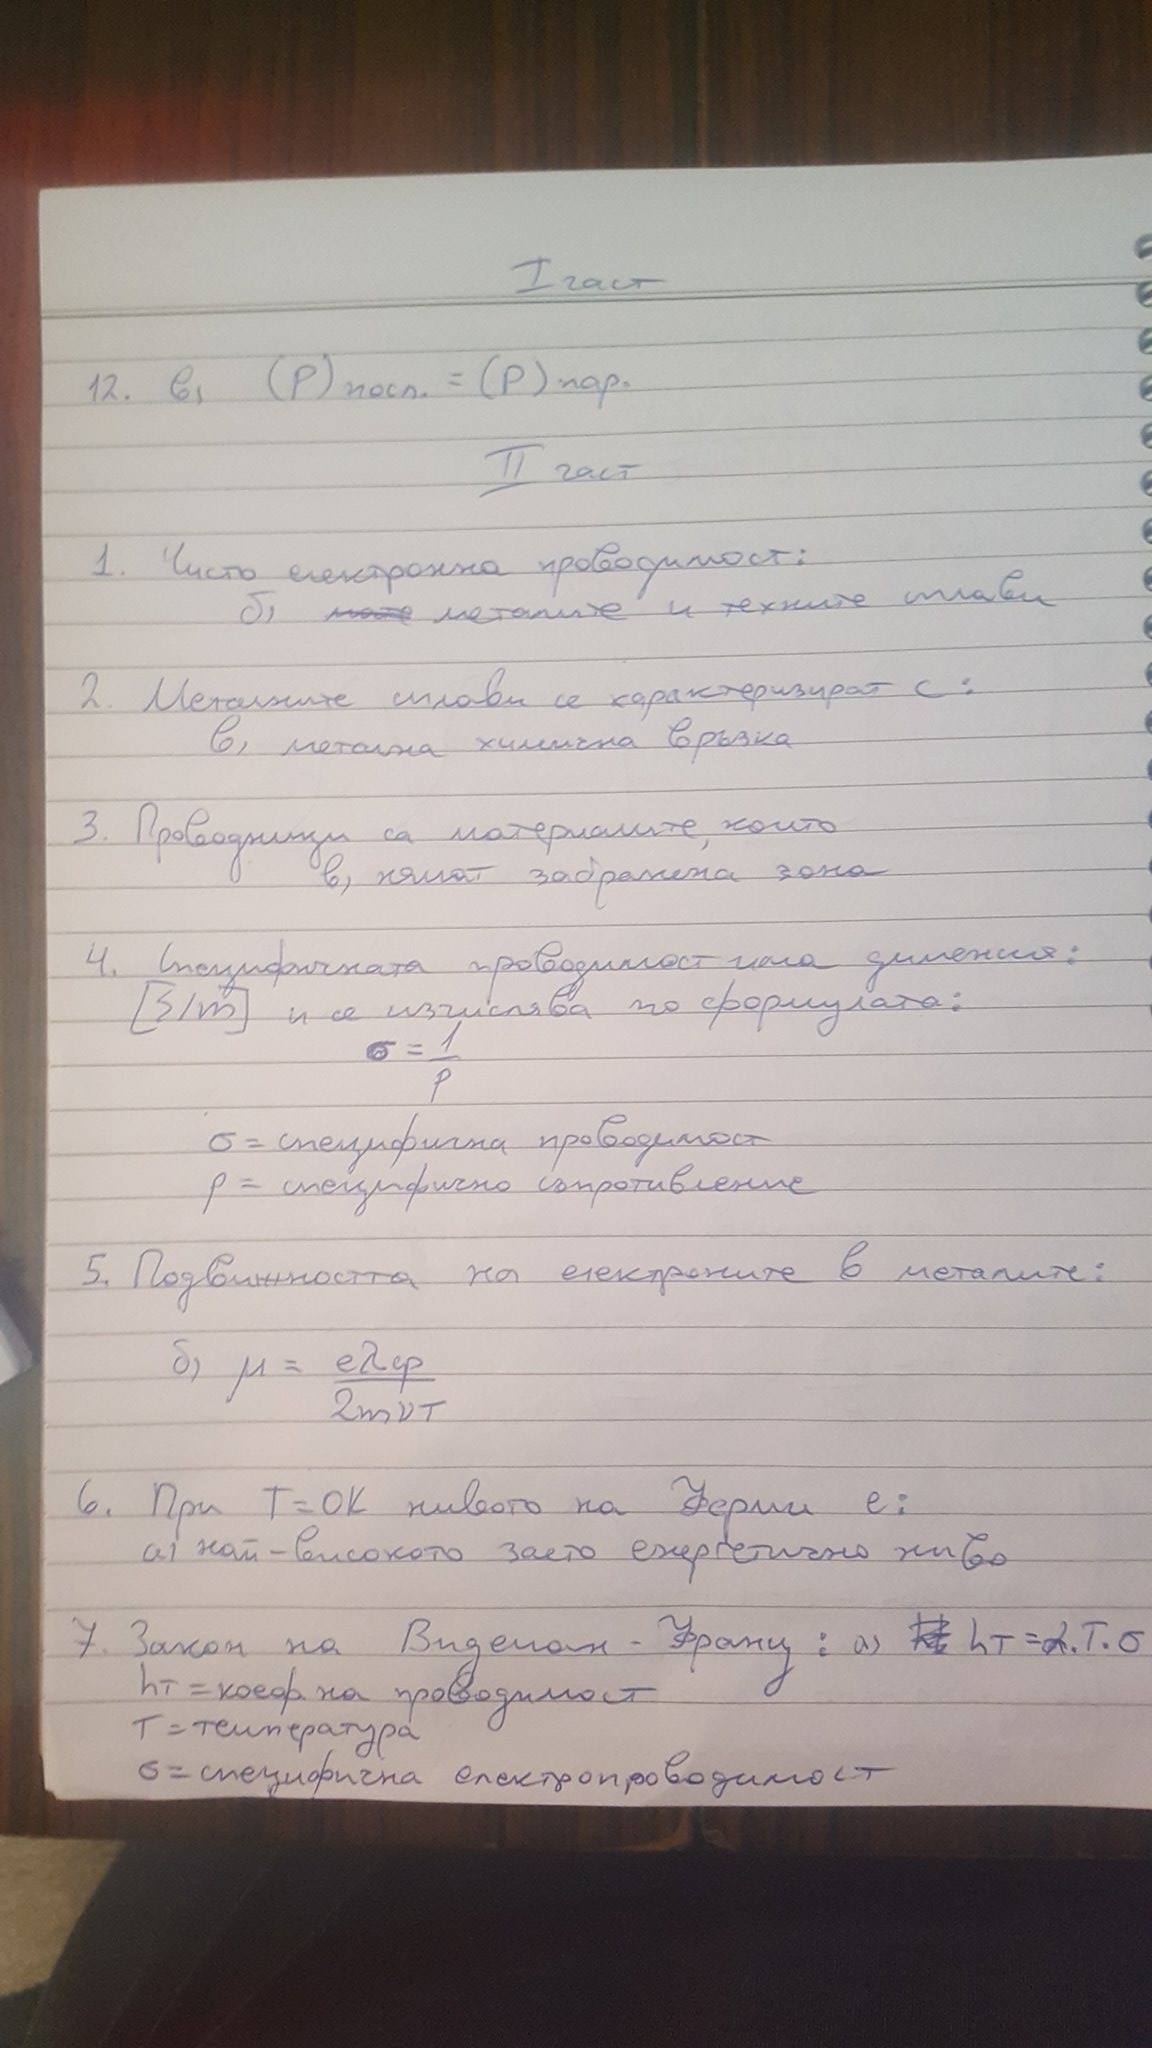 I част
12. в, (P) посл. = (P) пар.
II част
1. Чисто електронна проводимост:
б, металите и техните сплави
2. Металните сплави се характеризират с:
в, метална химична връзка
3. Проводници са материалите, които
в, нямат забранена зона
4. Специфичната проводимост има дименсия:
[S/m] и се изчислява по формулата:
σ = 1
ρ
σ = специфична проводимост
ρ = специфично съпротивление
5. Подвижността на електроните в металите:
б, μ = eλср
2mνT
6. При T=0K нивото на Ферми е:
а) най-високото заето енергетично ниво
7. Закон на Видеман - Франц: а) hт = α.T.σ
hт = коеф. на проводимост
T = температура
σ = специфична електропроводимост